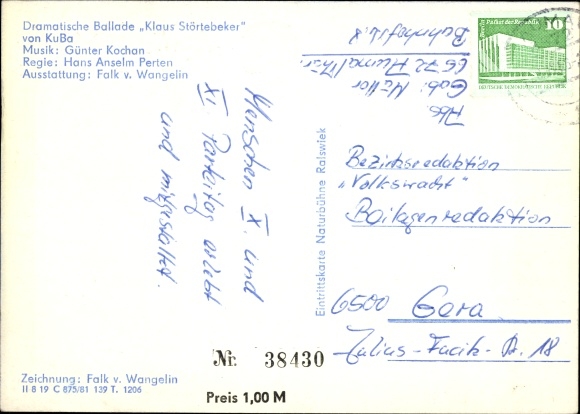 Dramatische Ballade „Klaus Störtebeker"
von KuBa
Musik: Günter Kochan
Regie: Hans Anselm Perten
Ausstattung: Falk v. Wangelin
Menschen X. und
XI. Parteitag erlebt
und mitgestaltet.
Abs
Gab. Müller
Bahnhofstr. 8
Eintrittskarte Naturbühne Ralswiek
Berlin Palast der Republik 10
DEUTSCHE DEMOKRATISCHE REPUBLIK
Bezirksredaktion
„Volkswacht"
Beilagenredaktion
6500 Gera
Julius-Fucik-Str. 18
Nr. 38430
Preis 1,00 M
Zeichnung: Falk v. Wangelin
II 8 19 C 875/81 139 T. 1206